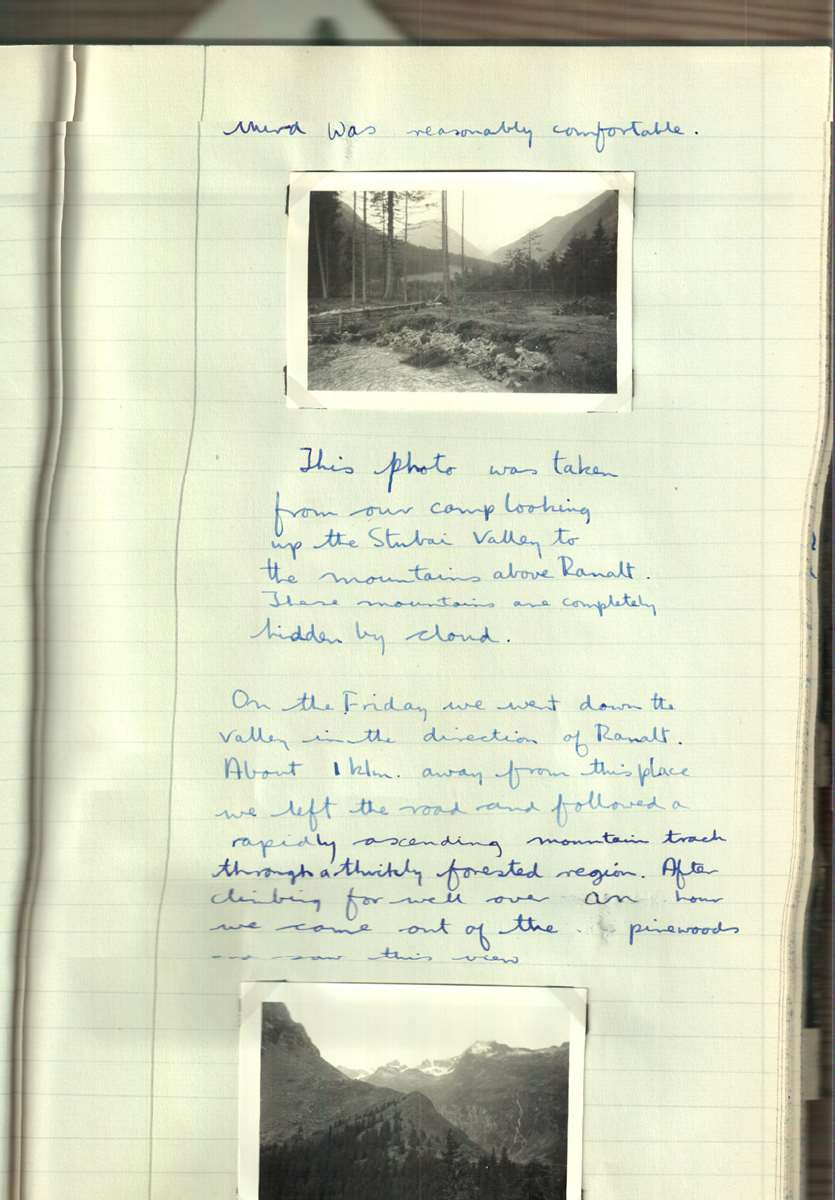 third was reasonably comfortable.
This photo was taken
from our camp looking
up the Stubai Valley to
the mountains above Ranalt.
These mountains are completely
hidden by cloud.
On the Friday we went down the
valley in the direction of Ranalt.
About 1 klm. away from this place
we left the road and followed a
rapidly ascending mountain track
through a thickly forested region. After
climbing for well over an hour
we came out of the pinewoods
saw this view